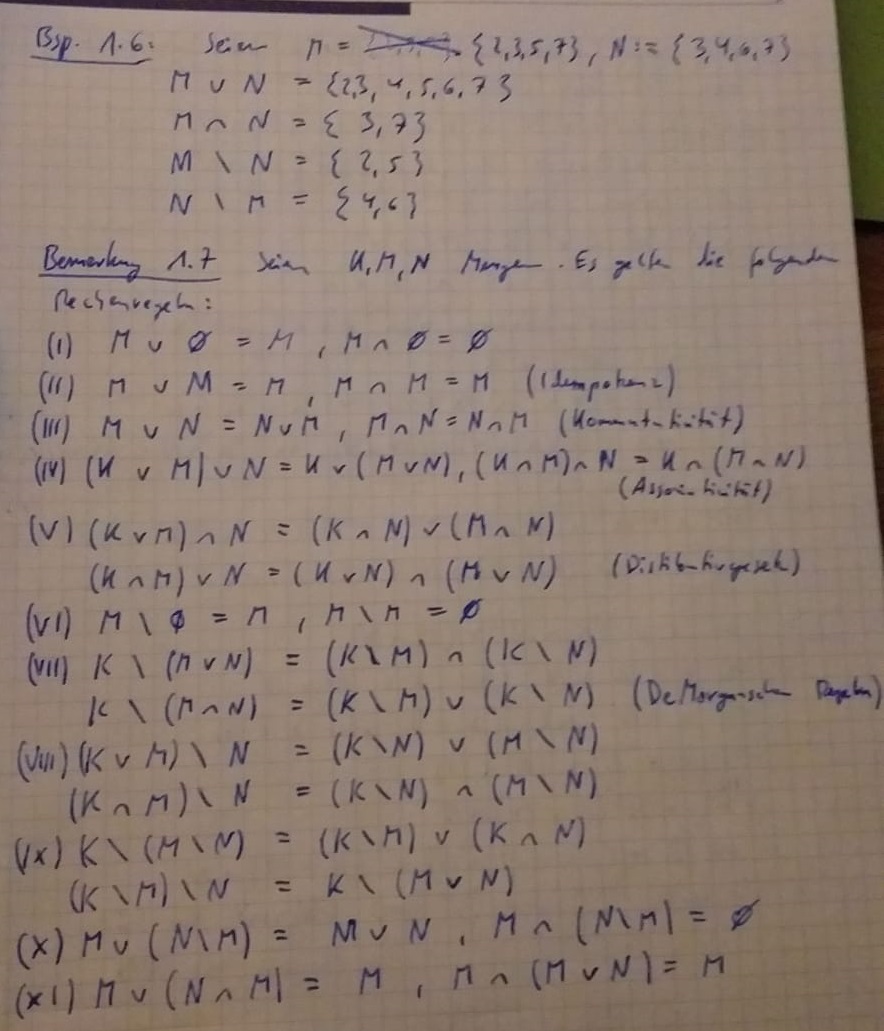 Bsp. 1.6: Seien M = {2,3,5,7}, N := {3,4,6,7}
M ∪ N = {2,3,4,5,6,7}
M ∩ N = {3,7}
M \ N = {2,5}
N \ M = {4,6}
Bemerkung 1.7 Seien K, M, N Mengen. Es gelten die folgenden
Rechenregeln:
(I) M ∪ ∅ = M, M ∩ ∅ = ∅
(II) M ∪ M = M, M ∩ M = M (Idempotenz)
(III) M ∪ N = N ∪ M, M ∩ N = N ∩ M (Kommutativität)
(IV) (K ∪ M) ∪ N = K ∪ (M ∪ N), (K ∩ M) ∩ N = K ∩ (M ∩ N)
(Assoziativität)
(V) (K ∪ M) ∩ N = (K ∩ N) ∪ (M ∩ N)
(K ∩ M) ∪ N = (K ∪ N) ∩ (M ∪ N) (Distributivgesetz)
(VI) M \ ∅ = M, M \ M = ∅
(VII) K \ (M ∪ N) = (K \ M) ∩ (K \ N)
K \ (M ∩ N) = (K \ M) ∪ (K \ N) (DeMorganschen Regeln)
(VIII) (K ∪ M) \ N = (K \ N) ∪ (M \ N)
(K ∩ M) \ N = (K \ N) ∩ (M \ N)
(IX) K \ (M \ N) = (K \ M) ∪ (K ∩ N)
(K \ M) \ N = K \ (M ∪ N)
(X) M ∪ (N \ M) = M ∪ N, M ∩ (N \ M) = ∅
(XI) M ∪ (N ∩ M) = M, M ∩ (M ∪ N) = M